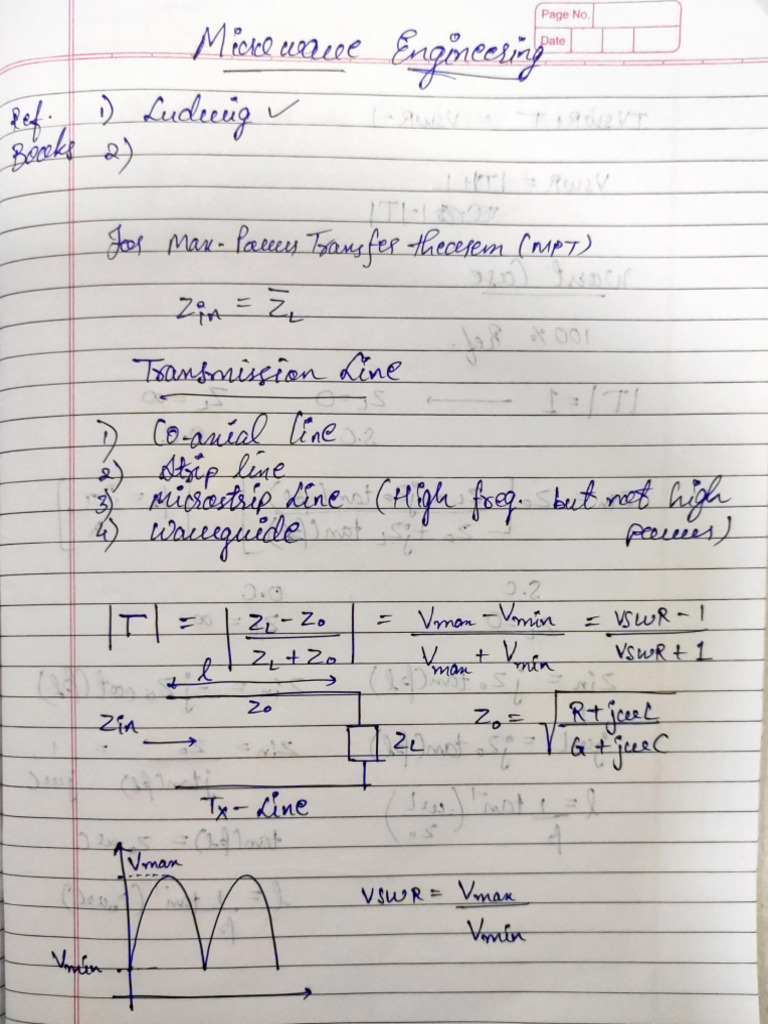 Page No.
Date
Microwave Engineering
Ref. 1) Ludwig ✓
Books 2)
for Max-Power Transfer theorem (MPT)
Zin = Z̅L
Transmission Line
1) Co-axial line
2) Strip line
3) Microstrip Line (High freq. but not high
4) Waveguide power)
|Γ| = |(ZL - Z0)/(ZL + Z0)| = (Vmax - Vmin)/(Vmax + Vmin) = (VSWR - 1)/(VSWR + 1)
l
Z0
Zin
ZL
Z0 = √((R + jωL)/(G + jωC))
Tx - Line
Vmax
VSWR = Vmax/Vmin
Vmin